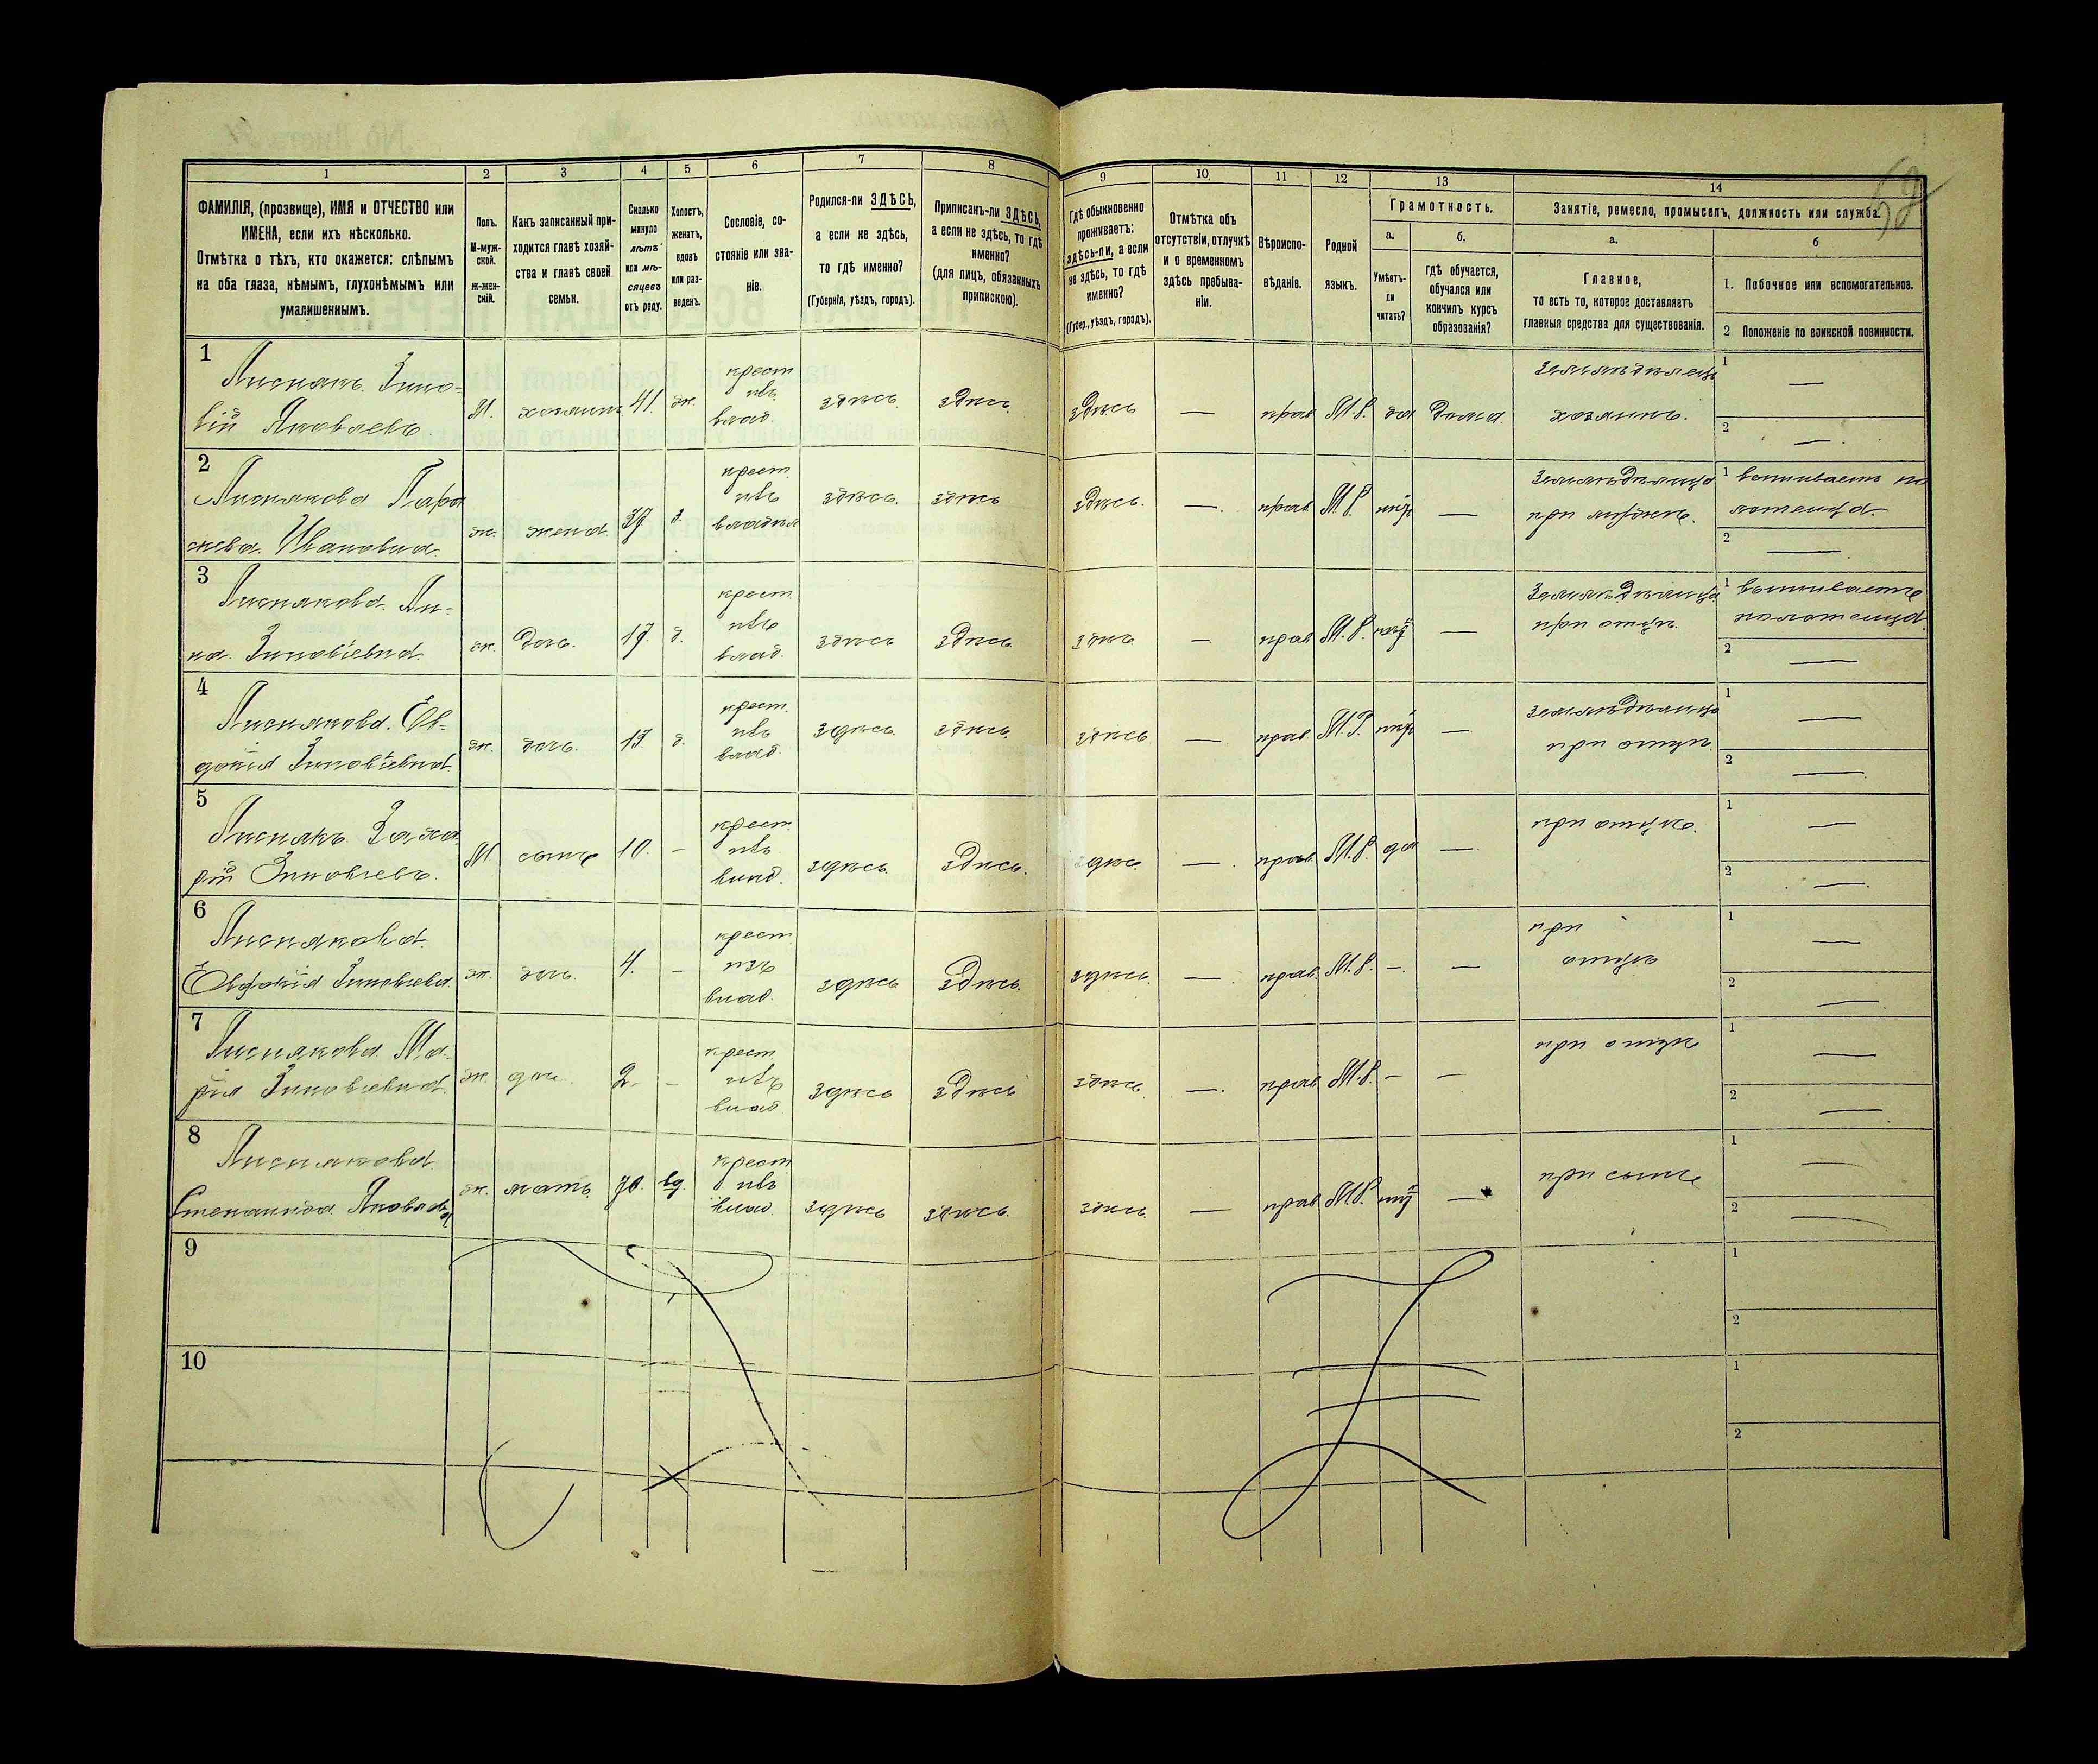 1
2
3
4
5
6
7
8
9
10
11
12
13
14
ФАМИЛІЯ, (прозвище), ИМЯ и ОТЧЕСТВО или
ИМЕНА, если ихъ нѣсколько.
Отмѣтка о тѣхъ, кто окажется: слѣпымъ
на оба глаза, нѣмымъ, глухонѣмымъ или
умалишеннымъ.
Полъ.
М-муж-
ской.
ж-жен-
скій.
Какъ записанный при-
ходится главѣ хозяй-
ства и главѣ своей
семьи.
Сколько
минуло
лѣтъ
или мѣ-
сяцевъ
отъ роду.
Холостъ,
женатъ,
вдовъ
или раз-
веденъ.
Сословіе, со-
стояніе или зва-
ніе.
Родился-ли ЗДѢСЬ,
а если не здѣсь,
то гдѣ именно?
(Губернія, уѣздъ, городъ).
Приписанъ-ли ЗДѢСЬ,
а если не здѣсь, то гдѣ
именно?
(для лицъ, обязанныхъ
припискою).
Гдѣ обыкновенно
проживаетъ:
здѣсь-ли, а если
не здѣсь, то гдѣ
именно?
(Губер., уѣздъ, городъ).
Отмѣтка объ
отсутствіи, отлучкѣ
и о временномъ
здѣсь пребыва-
ніи.
Вѣроиспо-
вѣданіе.
Родной
языкъ.
Грамотность.
а.
Умѣетъ-
ли
читать?
б.
гдѣ обучается,
обучался или
кончилъ курсъ
образованія?
Занятіе, ремесло, промыселъ, должность или служба.
а.
Главное,
то есть то, которое доставляетъ
главныя средства для существованія.
б
1. Побочное или вспомогательное.
2 Положеніе по воинской повинности.
1
Лиснякъ Зино-
вій Яковлевъ
М. хозяинъ 41. ж.
крест
изъ
влад.
здѣсь здѣсь здѣсь — прав М.Р. да дома
земледѣлецъ
хозяинъ.
1 —
2 —
2
Лиснякова Пара
скева Ивановна
ж. жена 37 з.
крест
изъ
владѣл
здѣсь. здѣсь здѣсь. — прав М.Р. нѣтъ —
Земледѣлица
при мужѣ.
1 вышиваетъ по
лотенца
2 —
3
Лиснякова Ан-
на Зиновіевна
ж. дочь. 17. д.
крест.
изъ
влад.
здѣсь здѣсь здѣсь — прав М.Р. нѣтъ —
Земледѣлица
при отцѣ.
1 вышиваетъ
полотенца
2 —
4
Лиснякова Ев-
докія Зиновіевна
ж. дочь. 13. д.
крест.
изъ
влад.
здѣсь здѣсь здѣсь — прав М.Р. нѣтъ —
земледѣлица
при отцѣ
1 —
2 —
5
Лиснякъ Заха
рій Зиновіевъ.
М сынъ 10. —
крест.
изъ
влад.
здѣсь здѣсь. здѣсь — прав М.Р. да —
при отцѣ.
1 —
2 —
6
Лиснякова
Евдокія Зиновіева
ж. дочь. 4. —
крест.
изъ
влад.
здѣсь здѣсь здѣсь. — прав М.Р. — —
при
отцѣ
1 —
2 —
7
Лиснякова Ма-
рія Зиновіевна
ж. доч. 2. —
крест.
изъ
влад.
здѣсь здѣсь здѣсь — прав М.Р. — —
при отцѣ
1 —
2 —
8
Лиснякова
Степанида Яковлева
ж. мать 70. вд.
крест
изъ
влад.
здѣсь здѣсь здѣсь — прав М.Р. нѣтъ —
при сынѣ
1 —
2 —
9
1
2
10
1
2